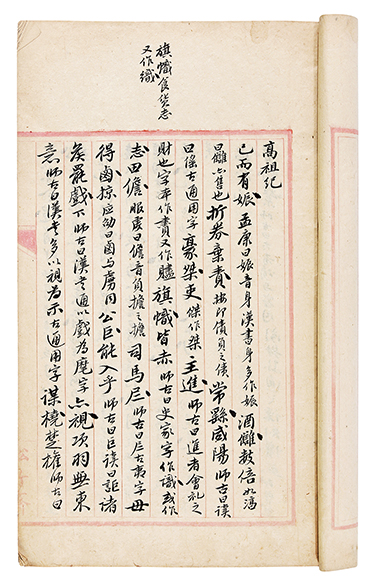 旗幟食貨志
又作織
高祖紀
已而有娠孟康曰娠音身漢書身多作娠酒讎數倍如淳
曰讎亦售也折券棄責按即債負之債常繇咸陽師古曰讀
曰徭古通用字豪桀吏傑作桀主進師古曰進者會礼之
財也字平作賮又作贐旗幟皆赤師古曰史家字作識或作
志田儋服虔曰儋音負擔之擔司馬尼師古曰尼古夷字毋
得鹵掠應劭曰鹵与虜同公巨能入乎師古曰巨讀曰詎諸
矦罷戲下師古曰漢書通以戲為麾字亦視項羽無東
意師古曰漢書多以視為示古通用字謀橈楚權師古曰